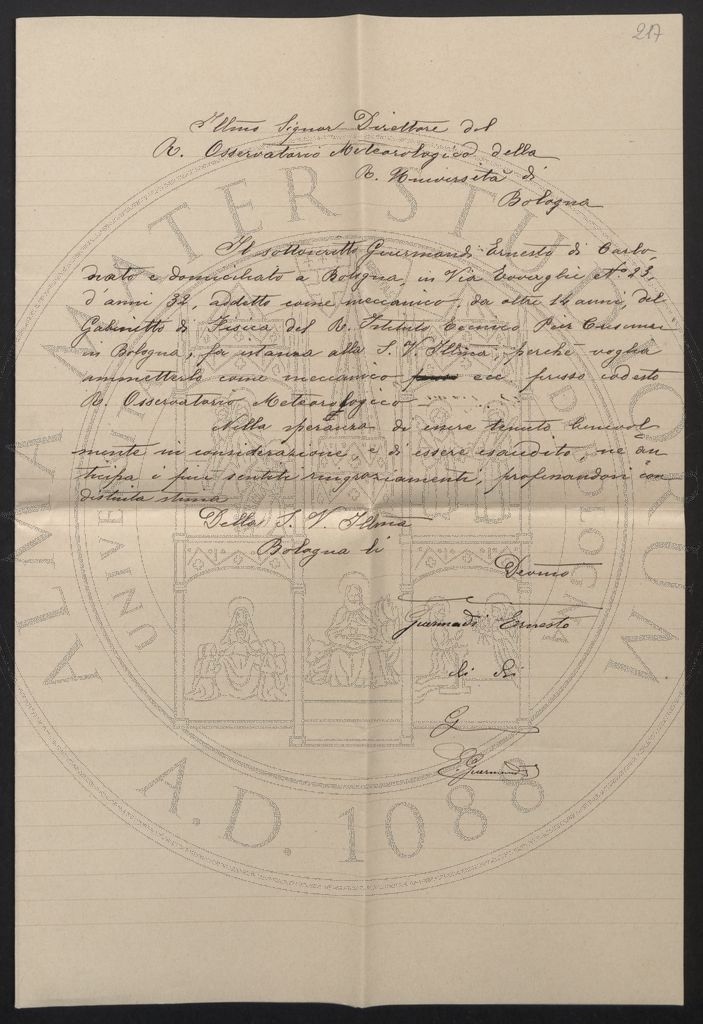 217
Illmo Signor Direttore del
R. Osservatorio Meteorologico della
R. Università di
Bologna
Il sottoscritto Guermandi Ernesto di Carlo,
nato e domiciliato a Bologna, in Via N.o 23,
d'anni 32, addetto come meccanico, da oltre 14 anni, del
Gabinetto di Fisica del R. Istituto Tecnico Pier Crescenzi
in Bologna, fa istanza alla S. V. Illma, perchè voglia
ammetterlo come meccanico ecc presso codesto
R. Osservatorio Meteorologico
Nella speranza di essere tenuto benevol-
mente in considerazione, e di essere esaudito, ne an-
tecipa i piui sentiti ringraziamenti, professandosi con
distinta stima
Della S. V. Illma
Bologna li
Devmo
Guermadi Ernesto
di
G
E. Guermandi
ALMA MATER STUDIORUM
A.D. 1088